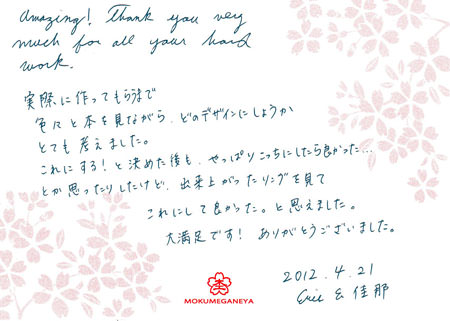 Amazing! Thank you very
much for all your hard
work.
実際に作ってもらうまで
色々と本を見ながら、どのデザインにしようか
とても考えました。
これにする！と決めた後も、やっぱりこっちにしたら良かった…
とか思ったりしたけど、出来上がったリングを見て
これにして良かった。と思えました。
大満足です！ ありがとうございました。
2012.4.21
Eric & 佳那
MOKUMEGANEYA